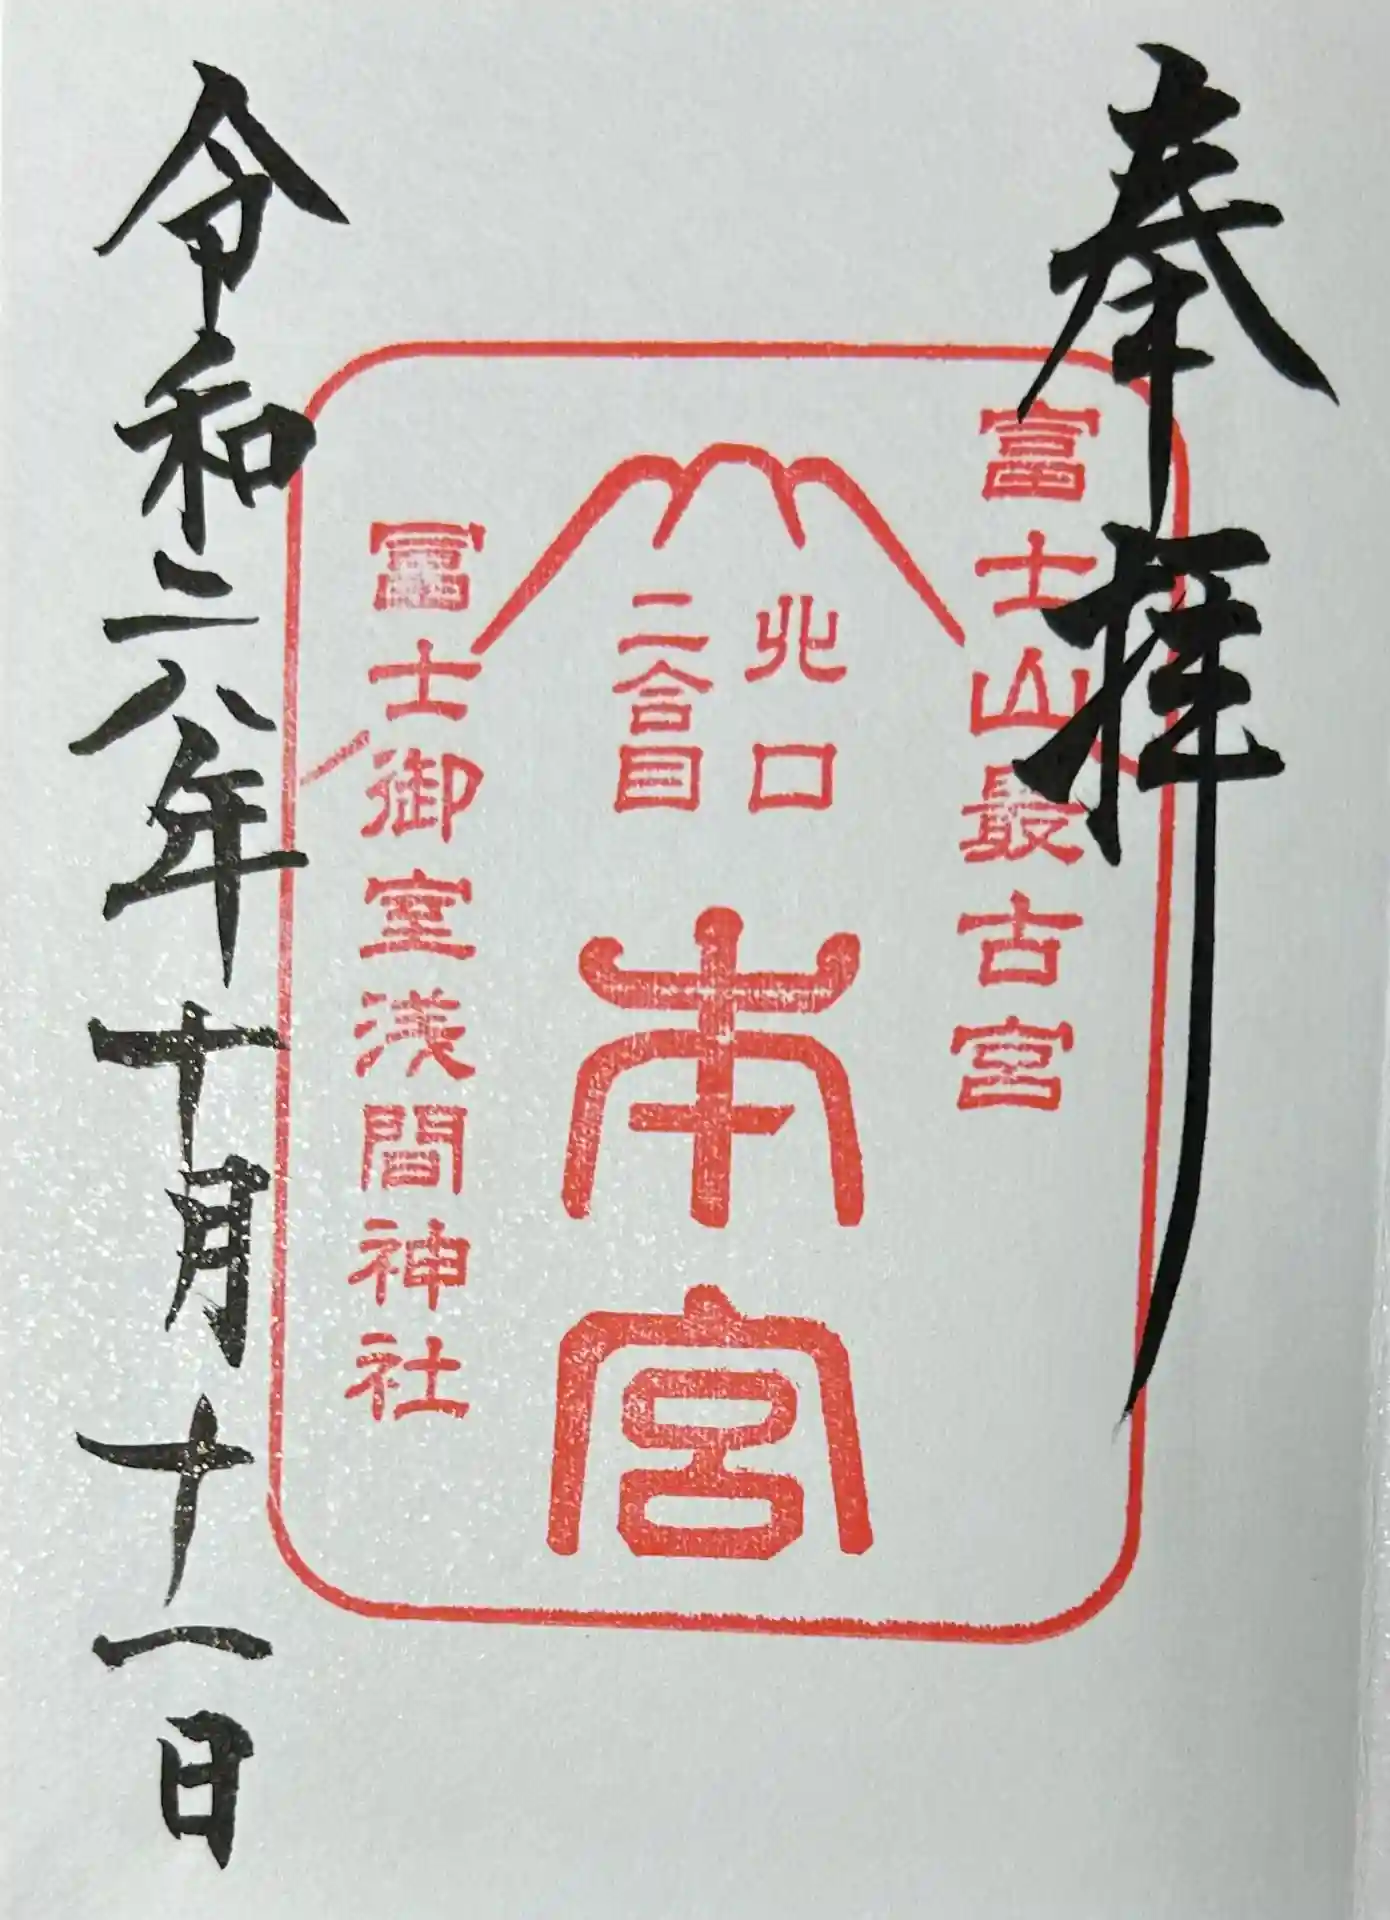 奉拝
富士山最古宮
北口
二合目
本宮
冨士御室浅間神社
令和六年十月十一日